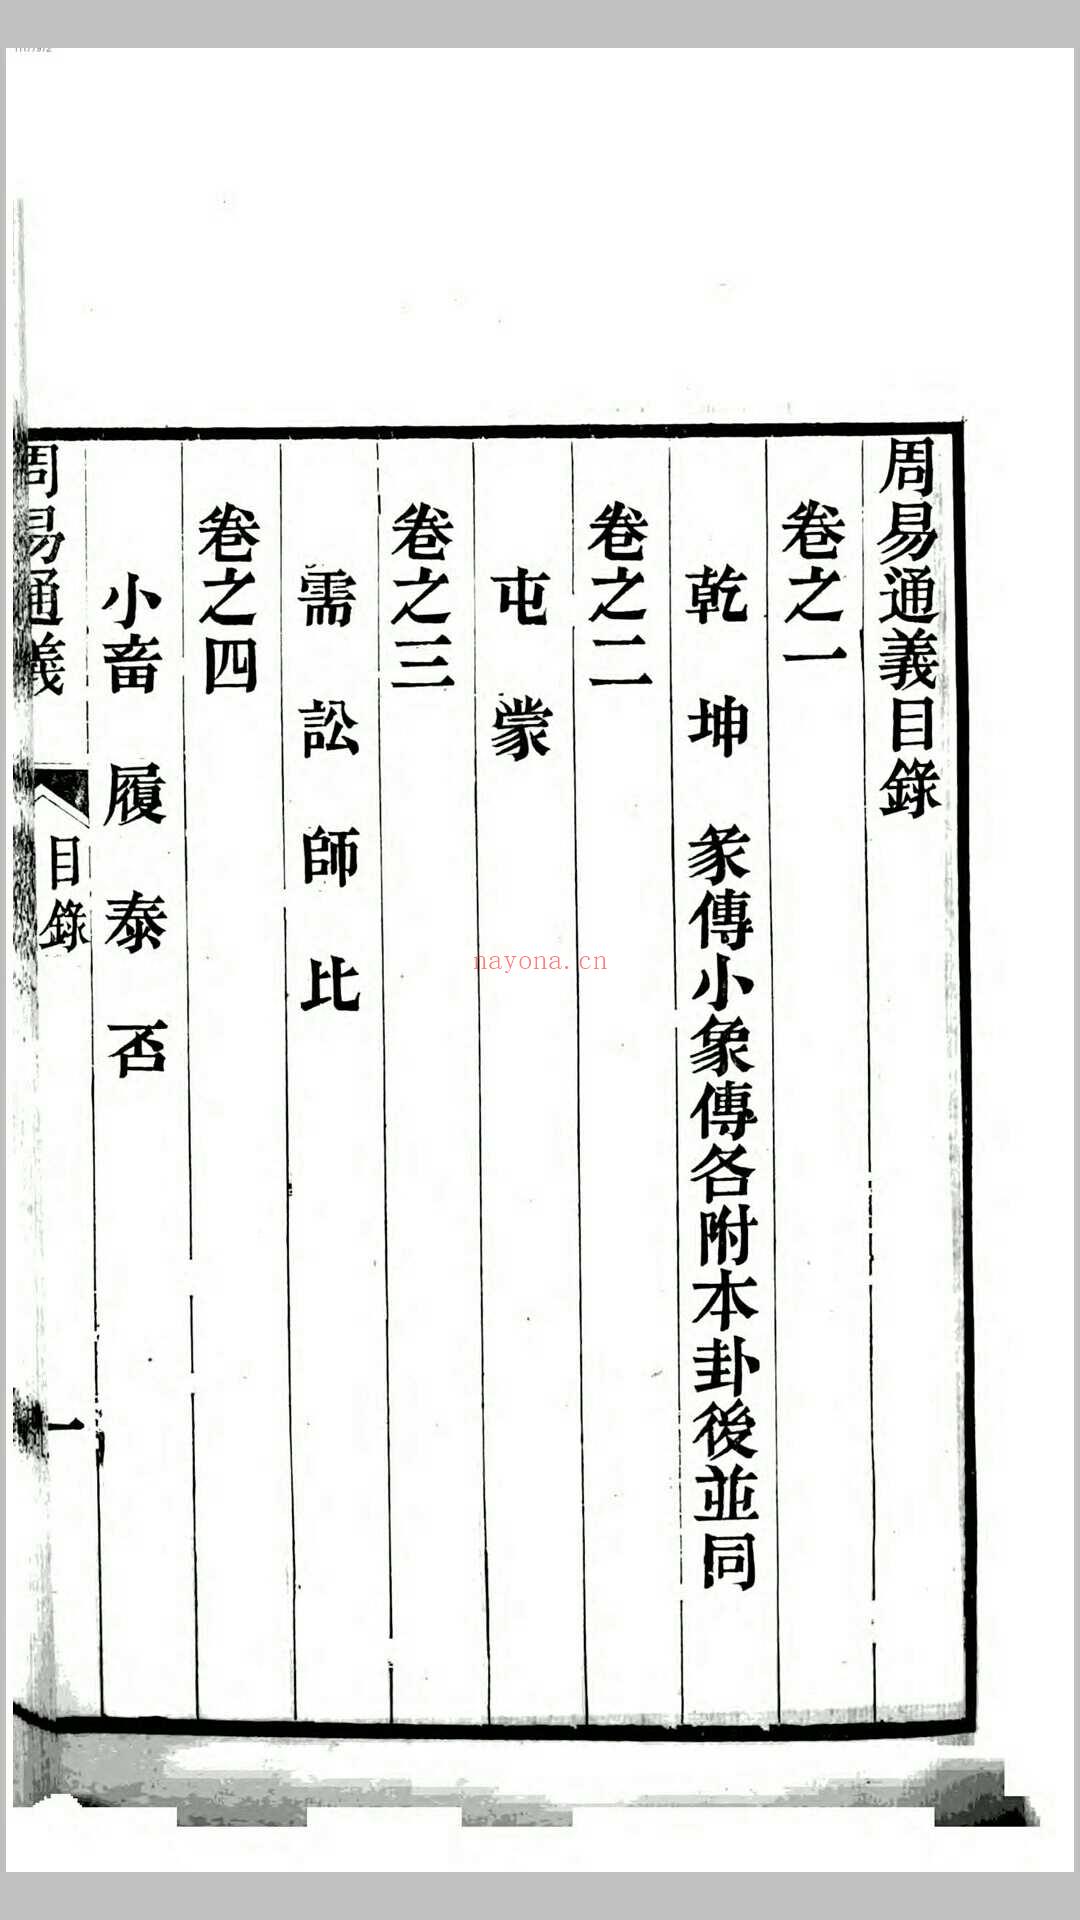 周易通義目錄
卷之一
乾 坤 彖傳小象傳各附本卦後並同
卷之二
屯 蒙
卷之三
需 訟 師 比
卷之四
小畜 履 泰 否
周易通義 目錄 一
nayona.cn